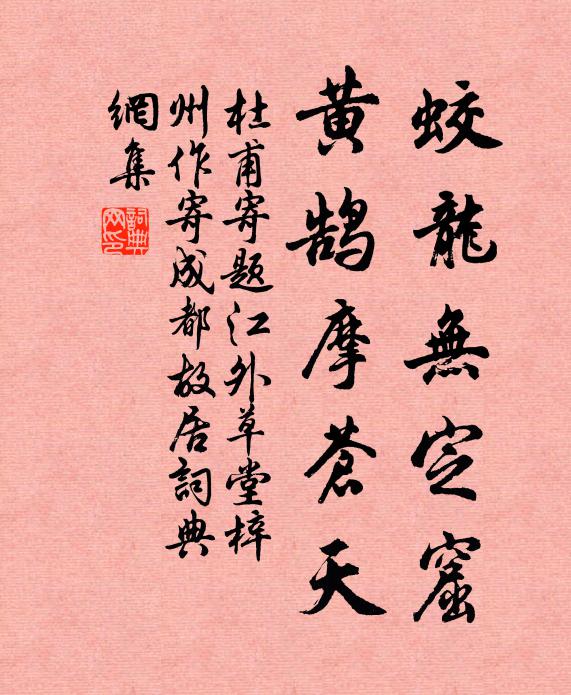 蛟龍無定窟
黃鵠摩蒼天
杜甫寄題江外草堂梓
州作寄成都故居詞典
網集
詞典
网印